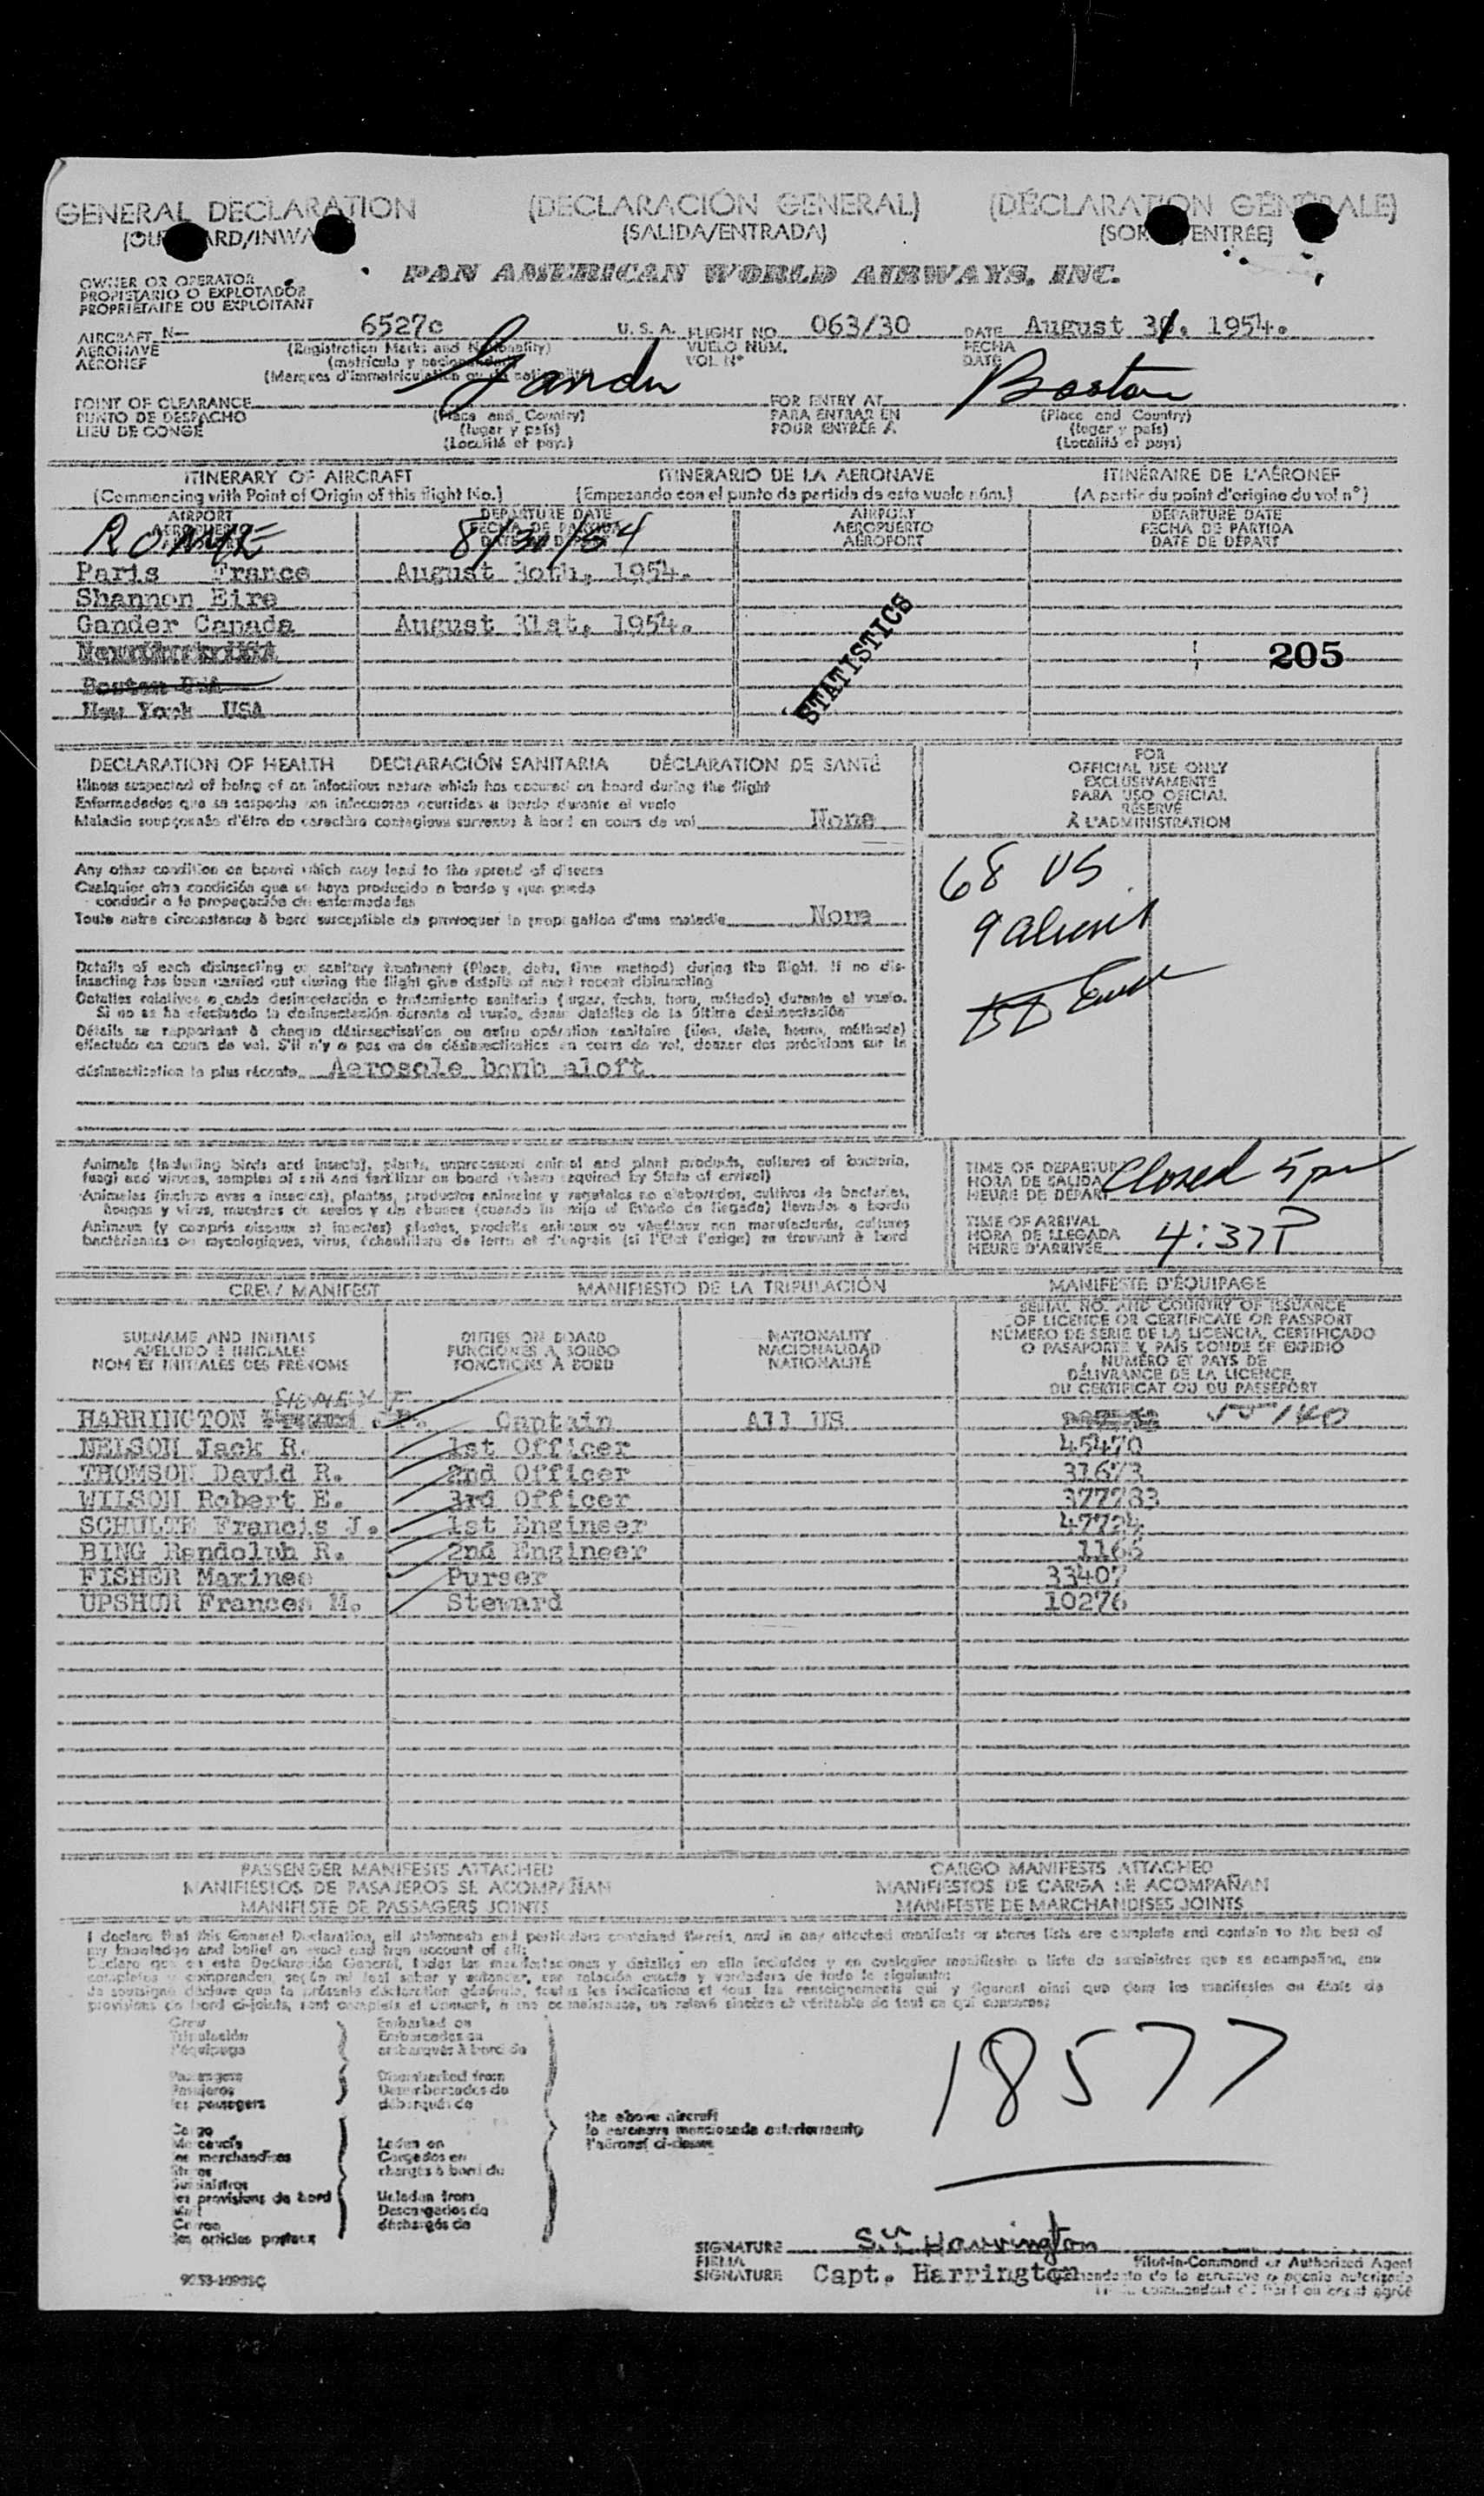 GENERAL DECLARATION (DECLARACIÓN GENERAL) (DÉCLARATION GÉNÉRALE)
(SALIDA/ENTRADA)
PAN AMERICAN WORLD AIRWAYS, INC.
OWNER OR OPERATOR
PROPIETARIO O EXPLOTADOR
PROPRIÉTAIRE OU EXPLOITANT
AIRCRAFT N— 6527c U. S. A. FLIGHT NO. 063/30 DATE August 31, 1954.
AERONAVE (Registration Marks and Nationality) VUELO NUM. FECHA
AÉRONEF (matrícula y nacionalidad) VOL Nº DATE
(Marques d'immatriculation ou de nationalité)
POINT OF CLEARANCE Gander FOR ENTRY AT Boston
PUNTO DE DESPACHO (Place and Country) PARA ENTRAR EN (Place and Country)
LIEU DE CONGÉ (lugar y país) POUR ENTRÉE A (lugar y país)
(Localité et pays) (Localité et pays)
ITINERARY OF AIRCRAFT ITINERARIO DE LA AERONAVE ITINÉRAIRE DE L'AÉRONEF
(Commencing with Point of Origin of this flight No.) (Empezando con el punto de partida de este vuelo núm.) (A partir du point d'origine du vol nº)
AIRPORT DEPARTURE DATE AIRPORT DEPARTURE DATE
AEROPUERTO FECHA DE PARTIDA
AÉROPORT DATE DE DÉPART
ROME 8/30/54
Paris France August 30th, 1954.
Shannon Eire
Gander Canada August 31st, 1954.
205
Boston USA
New York USA
STATISTICS
DECLARATION OF HEALTH DECLARACIÓN SANITARIA DÉCLARATION DE SANTÉ
Illness suspected of being of an infectious nature which has occured on board during the flight
Enfermedades que se sospecha son infecciosas ocurridas a bordo durante el vuelo
Maladie soupçonnée d'être de caractère contagieux survenue à bord en cours de vol None
Any other condition on board which may lead to the spread of disease
Cualquier otra condición que se haya producido a bordo y que pueda
conducir a la propagación de enfermedades
Toute autre circonstance à bord susceptible de provoquer la propagation d'une maladie None
Details of each disinsecting or sanitary treatment (Place, date, time method) during the flight. If no dis-
insecting has been carried out during the flight give details of most recent disinsecting
Detalles relativos a cada desinsectación o tratamiento sanitario (lugar, fecha, hora, método) durante el vuelo.
Si no se ha efectuado la desinsectación durante el vuelo, dense detalles de la última desinsectación
Détails se rapportant à chaque désinsectisation ou autre opération sanitaire (lieu, date, heure, méthode)
effectuée en cours de vol. S'il n'y a pas eu de désinsectisation en cours de vol, donner des précisions sur la
désinsectisation la plus récente Aerosole bomb aloft
FOR
OFFICIAL USE ONLY
EXCLUSIVAMENTE
PARA USO OFICIAL
RÉSERVÉ
À L'ADMINISTRATION
68 US
9 aliens
Animals (including birds and insects), plants, unprocessed animal and plant products, cultures of bacteria,
fungi and viruses, samples of soil and fertilizer on board (where required by State of arrival)
Animales (incluso aves e insectos), plantas, productos animales y vegetales no elaborados, cultivos de bacterias,
hongos y virus, muestras de suelos y de abonos (cuando lo exija el Estado de llegada) llevados a bordo
Animaux (y compris oiseaux et insectes) plantes, produits animaux ou végétaux non manufacturés, cultures
bactériennes ou mycologiques, virus, échantillons de terre et d'engrais (si l'État l'exige) se trouvant à bord
TIME OF DEPARTURE
HORA DE SALIDA Closed 5 pm
HEURE DE DÉPART
TIME OF ARRIVAL
HORA DE LLEGADA 4:37P
HEURE D'ARRIVÉE
CREW MANIFEST MANIFIESTO DE LA TRIPULACIÓN MANIFESTE D'ÉQUIPAGE
SURNAME AND INITIALS DUTIES ON BOARD NATIONALITY SERIAL NO. AND COUNTRY OF ISSUANCE
APELLIDO E INICIALES FUNCIONES A BORDO NACIONALIDAD OF LICENCE OR CERTIFICATE OR PASSPORT
NOM ET INITIALES DES PRÉNOMS FONCTIONS À BORD NATIONALITÉ NÚMERO DE SERIE DE LA LICENCIA, CERTIFICADO
O PASAPORTE Y PAÍS DONDE SE EXPIDIÓ
NUMÉRO ET PAYS DE
DÉLIVRANCE DE LA LICENCE,
DU CERTIFICAT OU DU PASSEPORT
HARRINGTON Captain All US 55140
NELSON Jack R. 1st Officer 45470
THOMSON David R. 2nd Officer 31673
WILSON Robert E. 3rd Officer 377783
SCHULTE Francis J. 1st Engineer 47724
BING Randolph R. 2nd Engineer 1166
FISHER Maxinee Purser 33407
UPSHUR Frances M. Steward 10276
PASSENGER MANIFESTS ATTACHED CARGO MANIFESTS ATTACHED
MANIFIESTOS DE PASAJEROS SE ACOMPAÑAN MANIFIESTOS DE CARGA SE ACOMPAÑAN
MANIFESTE DE PASSAGERS JOINTS MANIFESTE DE MARCHANDISES JOINTS
I declare that this General Declaration, all statements and particulars contained therein, and in any attached manifests or stores lists are complete and contain to the best of
my knowledge and belief an exact and true account of all:
Declaro que en esta Declaración General, todas las manifestaciones y detalles en ella incluidos y en cualquier manifiesto o lista de suministros que se acompañan, son
completos y comprenden, según mi leal saber y entender, una relación exacta y verdadera de todo lo siguiente:
Je soussigné déclare que la présente déclaration générale, toutes les indications et tous les renseignements qui y figurent ainsi que dans les manifestes ou états de
provisions de bord ci-joints, sont complets et donnent, à ma connaissance, un relevé sincère et véritable de tout ce qui concerne:
Crew Embarked on
Tripulación Embarcados en
l'équipage embarqués à bord de
Passengers Disembarked from
Pasajeros Desembarcados de
les passagers débarqués de
the above aircraft
la aeronave mencionada anteriormente
l'aéronef ci-dessus
Cargo
Mercancía Laden on
les merchandises Cargados en
Stores chargés à bord du
Suministros
les provisions de bord Unladen from
Mail Descargados de
Correo déchargés de
les articles postaux
18577
SIGNATURE Harrington Pilot-in-Command or Authorized Agent
FIRMA
SIGNATURE Capt. Harrington